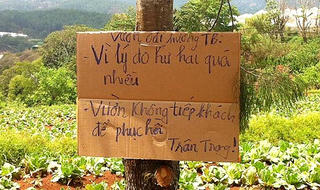 Vườn đại tướng TB.
- Vì lý do hư hại quá
nhiều
- Vườn không tiếp khách
để phục hồi
Thân Trọng!